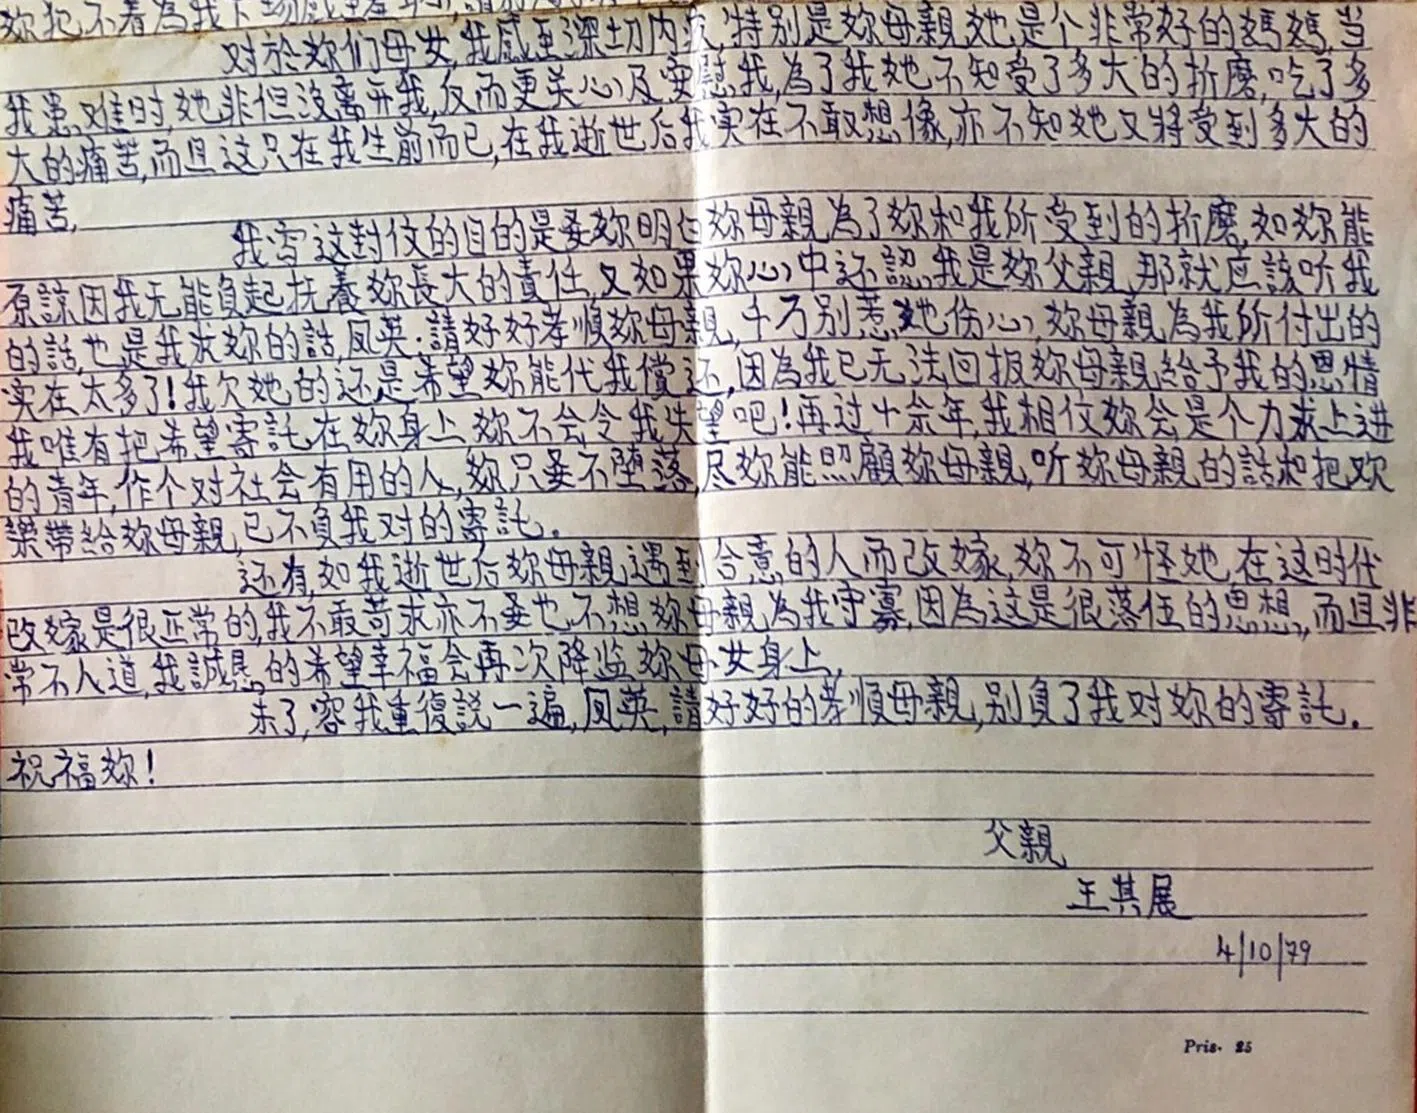 妳犯不着為我下場感到羞
对於妳们母女,我感到深切内疚,特别是妳母親,她是个非常好的媽媽,当
我患难时,她非但没离弃我,反而更关心及安慰我,為了我她不知受了多大的折磨,吃了多
大的痛苦,而且这只在我生前而已,在我逝世后我实在不敢想像,亦不知她又将受到多大的
痛苦,
我写这封信的目的是要妳明白妳母親為了妳和我所受到的折磨,如妳能
原諒因我无能負起抚養妳長大的責任,又如果妳心中还認我是妳父親,那就应該听我
的話,也是我求妳的話,凤英:請好好孝順妳母親,千万别惹她伤心,妳母親為我所付出的
实在太多了!我欠她的还是希望妳能代我償还,因為我已无法回报妳母親給予我的恩情
我唯有把希望寄託在妳身上,妳不会令我失望吧!再过十余年,我相信妳会是个力求上进
的青年,作个对社会有用的人,妳只要不堕落,尽妳能照顧妳母親,听妳母親的話和把欢
樂带給妳母親,已不負我对的寄託。
还有,如我逝世后妳母親遇到合意的人而改嫁,妳不可怪她,在这时代
改嫁是很正常的,我不敢苛求亦不要也不想妳母親為我守寡,因為这是很落伍的思想,而且非
常不人道,我誠恳的希望幸福会再次降监妳母女身上,
末了,容我重復説一遍,凤英,請好好的孝順母親,别負了我对妳的寄託。
祝福妳!
父親
王其展
4/10/79
Pris. 25